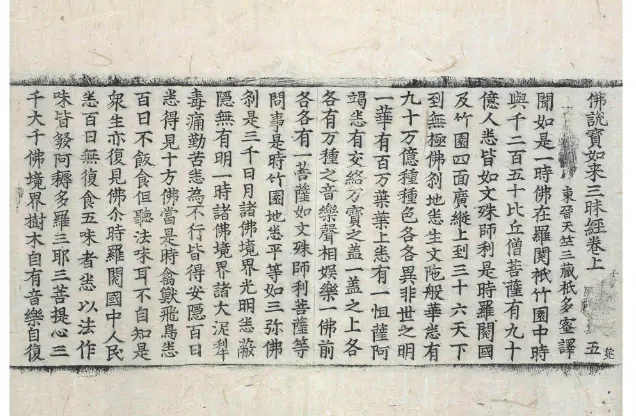 佛說寶如来三昧經卷上
東晉天竺三藏祇多蜜譯
聞如是一時佛在羅閱祇竹園中時
與千二百五十比丘僧菩薩有九十
億人悉皆如文殊師利是時羅閱國
及竹園四面廣縱上到三十六天下
到無極佛剎地悉生文陁般華悉有
九十万億種種色各各異非世之明
一華有百万葉葉上悉有一怛薩阿
竭悉有交絡万寶之盖一盖之上各
各有万種之音樂聲相娛樂一佛前
各各有一菩薩如文殊師利菩薩等
問事是時竹園地悉平等如三弥佛
剎是三千日月諸佛境界光明悉蔽
隱無有明一時諸佛境界諸大泥犁
毒痛勤苦悉為不行皆得安隱百日
悉得見十方佛當是時禽獸飛鳥悉
百日不飯食但聽法味耳不自知是
衆生亦復見佛尒時羅閱國中人民
悉百日無復食五味者悉以法作
味皆發阿耨多羅三耶三菩提心三
千大千佛境界樹木自有音樂自復